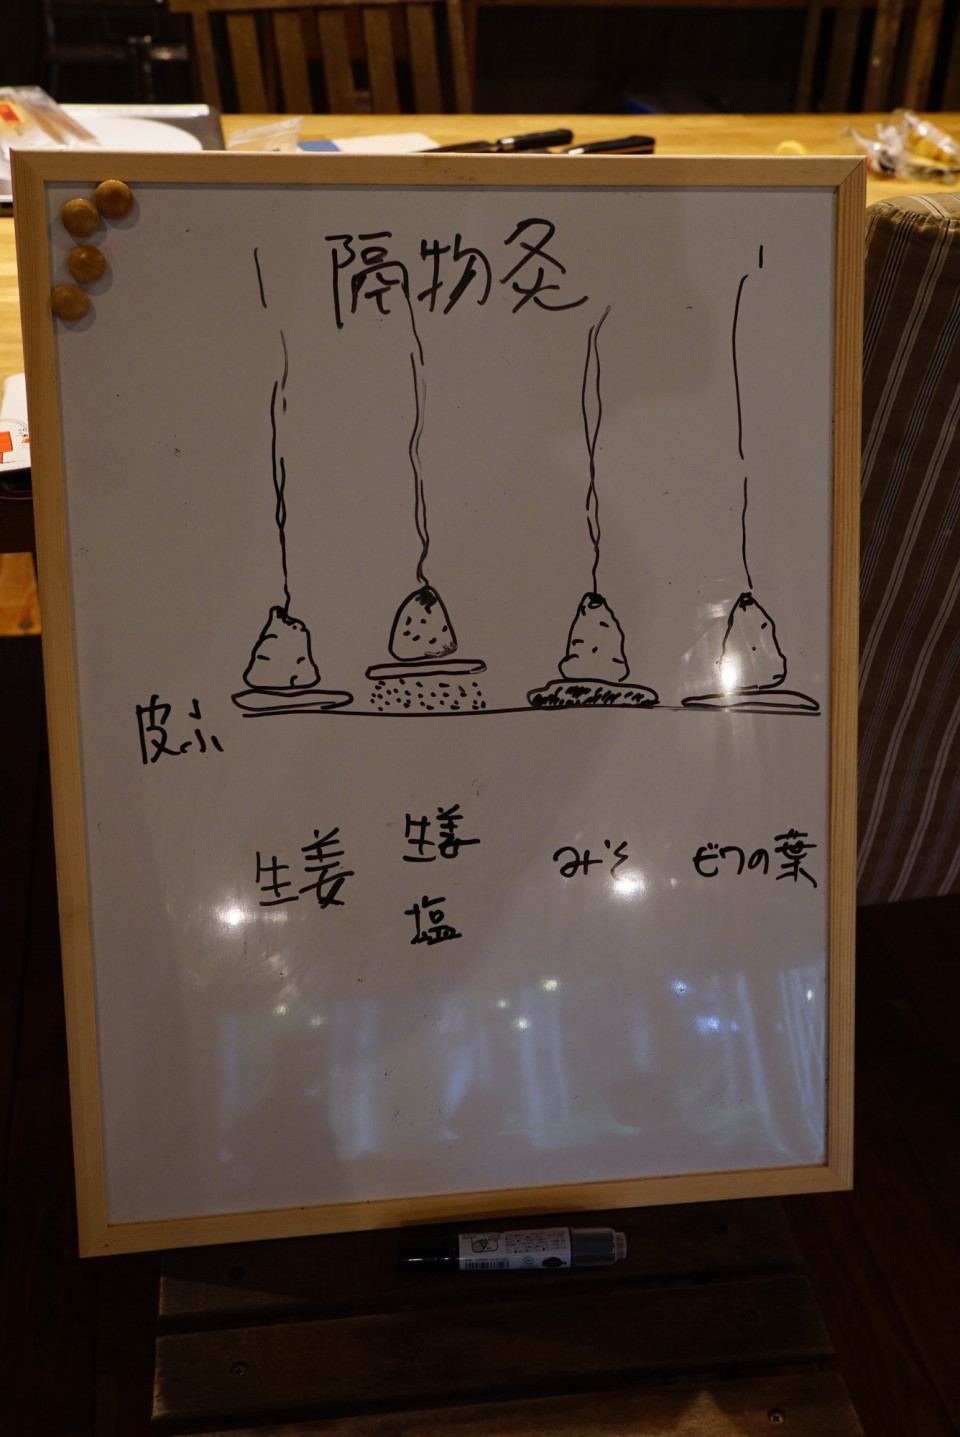 隔物灸
皮ふ
生姜
生姜
塩
みそ
ビワの葉